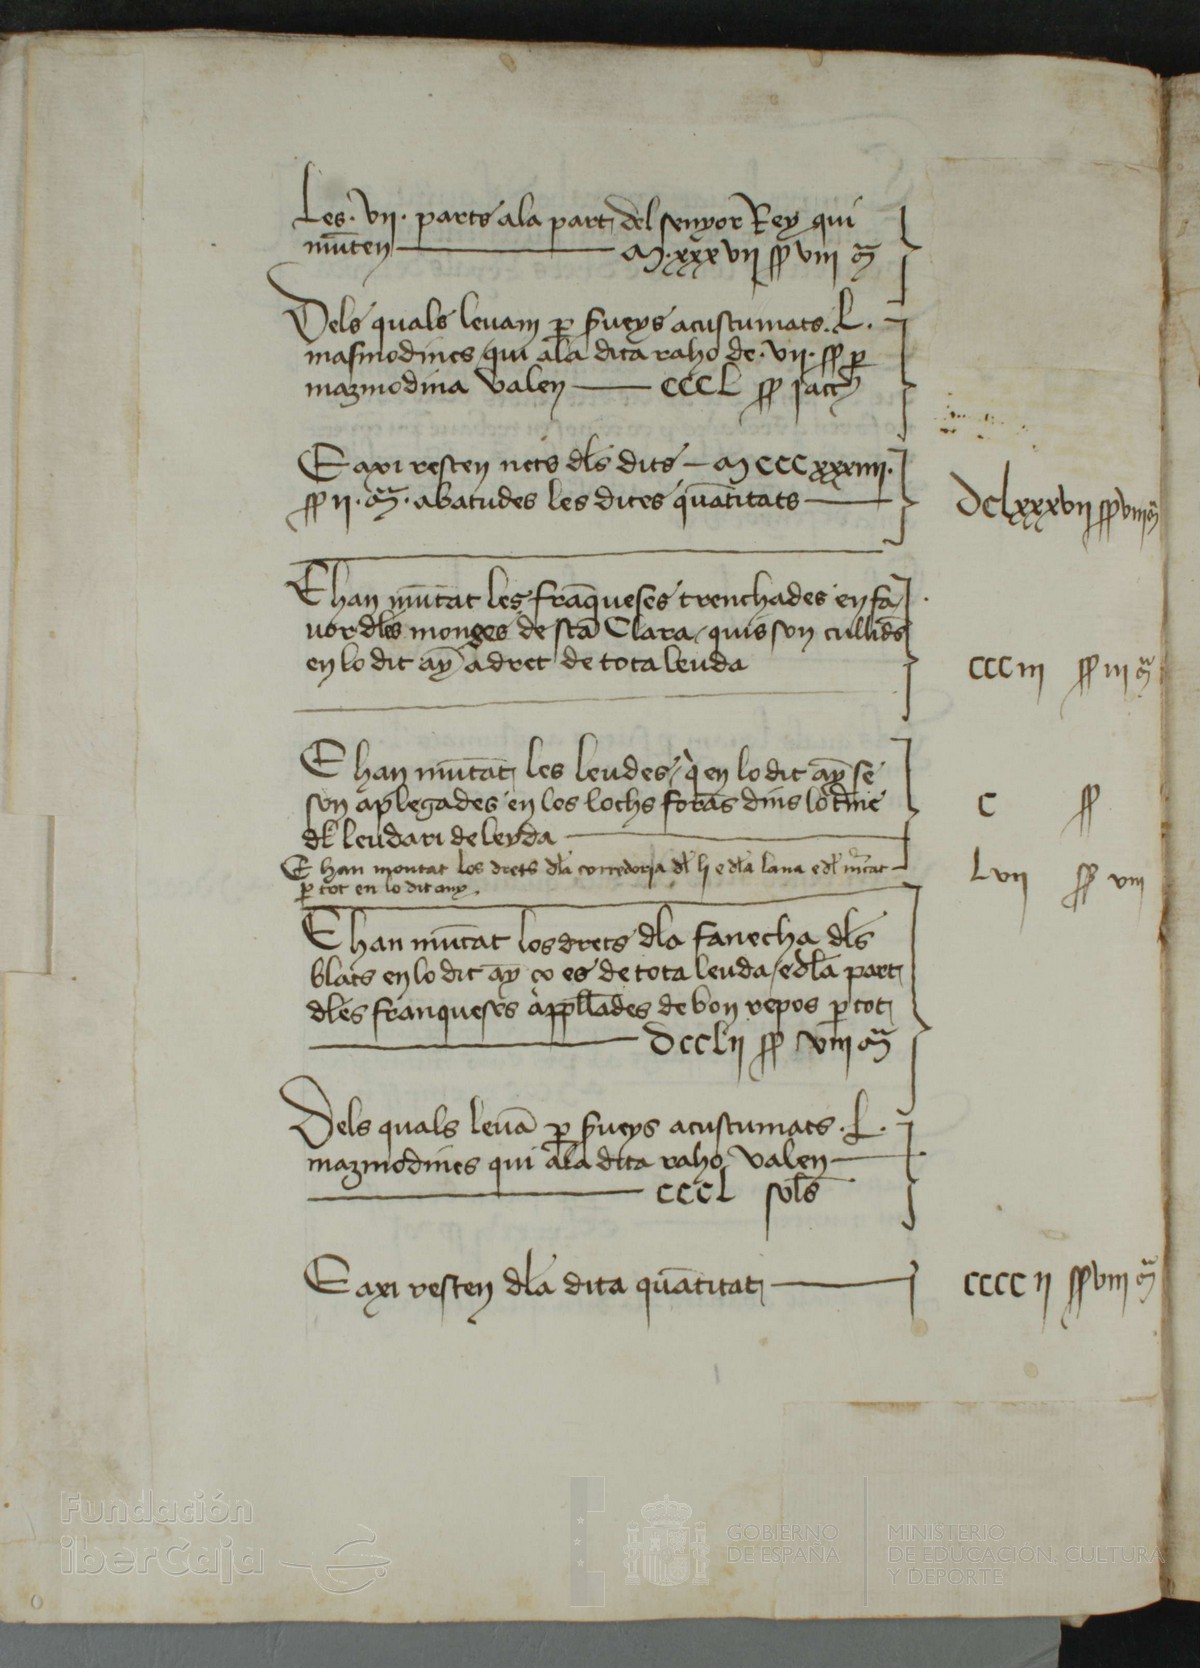 Les · vii · parts ala part del senyor Rey qui
mūten M·xxxvii ss viii d
Dels quals levam p s̄ueys acustumats . L .
masmodines qui ala dita raho de · vii · ss p
mazmodina valen CCCL ss jacc̄
E axi resten nets dl̄s dits M CCC xxxiiii .
ss ii · d̄ · abatudes les dites quātitats
Dclxxxvii ss viii d̄
E han mūtat les frāqueses trenchades en fa
vor dl̄s monges de stā Clara quis son cullid̄s
en lo dit ay̅ a dret de tota leuda
CCC iii ss iii d̄
E han mūtat les leudes q̄ en lo dit ay̅ se
son aplegades en los lochs forās dins lo t̄me
dl̄ leudari de leyda
C ss
E han montat los drets dl̄a corredoria dl̄ li e dl̄a lana e dl̄ m̄cat
p tot en lo dit any .
L vii ss viii
E han mūtat los drets dl̄a fanecha dl̄s
blats en lo dit ay̅ co es de tota leuda / e dl̄a part
dl̄es franqueses appl̄lades de bon repos p tot
DCClii ss viii d̄
Dels quals levā p s̄ueys acustumats . L .
mazmodines qui ala dita raho valen
CCCL sol̄s
E axi resten dl̄a dita quātitat
CCCC ii ss viii d̄
Fundación
iberCaja
GOBIERNO
DE ESPAÑA
MINISTERIO
DE EDUCACIÓN, CULTURA
Y DEPORTE